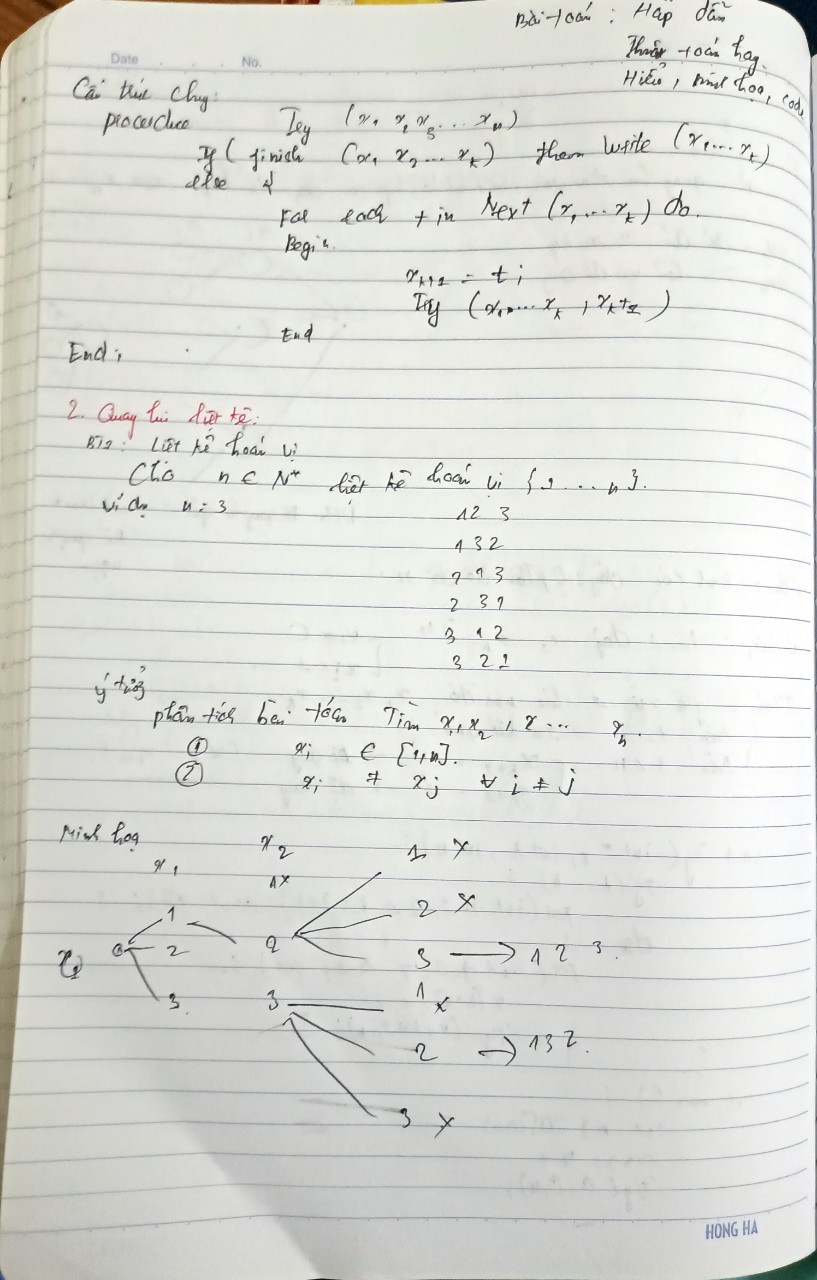 Bài toán : Hấp dẫn
Thuật toán hay
Hiểu, minh họa, code
Date No.
Cấu trúc chung:
procedure Try (x₁ x₂ x₃ ... xₙ)
If ( finish (x₁ x₂ ... xₖ) them write (x₁ ... xₖ)
else {
For each t in Next (x₁ ... xₖ) do.
Begin
xₖ₊₁ = t ;
Try (x₁, ... xₖ , xₖ₊₁)
End
End;
2. Quay lui liệt kê:
Liệt kê hoán vị
Cho n ∈ N* liệt kê hoán vị {1 ... n}.
ví dụ n = 3
12 3
1 3 2
2 1 3
2 3 1
3 1 2
3 2 1
ý tưởng
phân tích bài toán Tìm x₁, x₂ , x ... xₙ.
① xᵢ ∈ [1,n].
② xᵢ ≠ xⱼ ∀ i ≠ j
Minh hoạ
x₁ x₂ 1 x
1x
1 2 x
2 2 3 → 1 2 3.
3. 3 1 x
2 → 1 3 2.
3 x
HONG HA